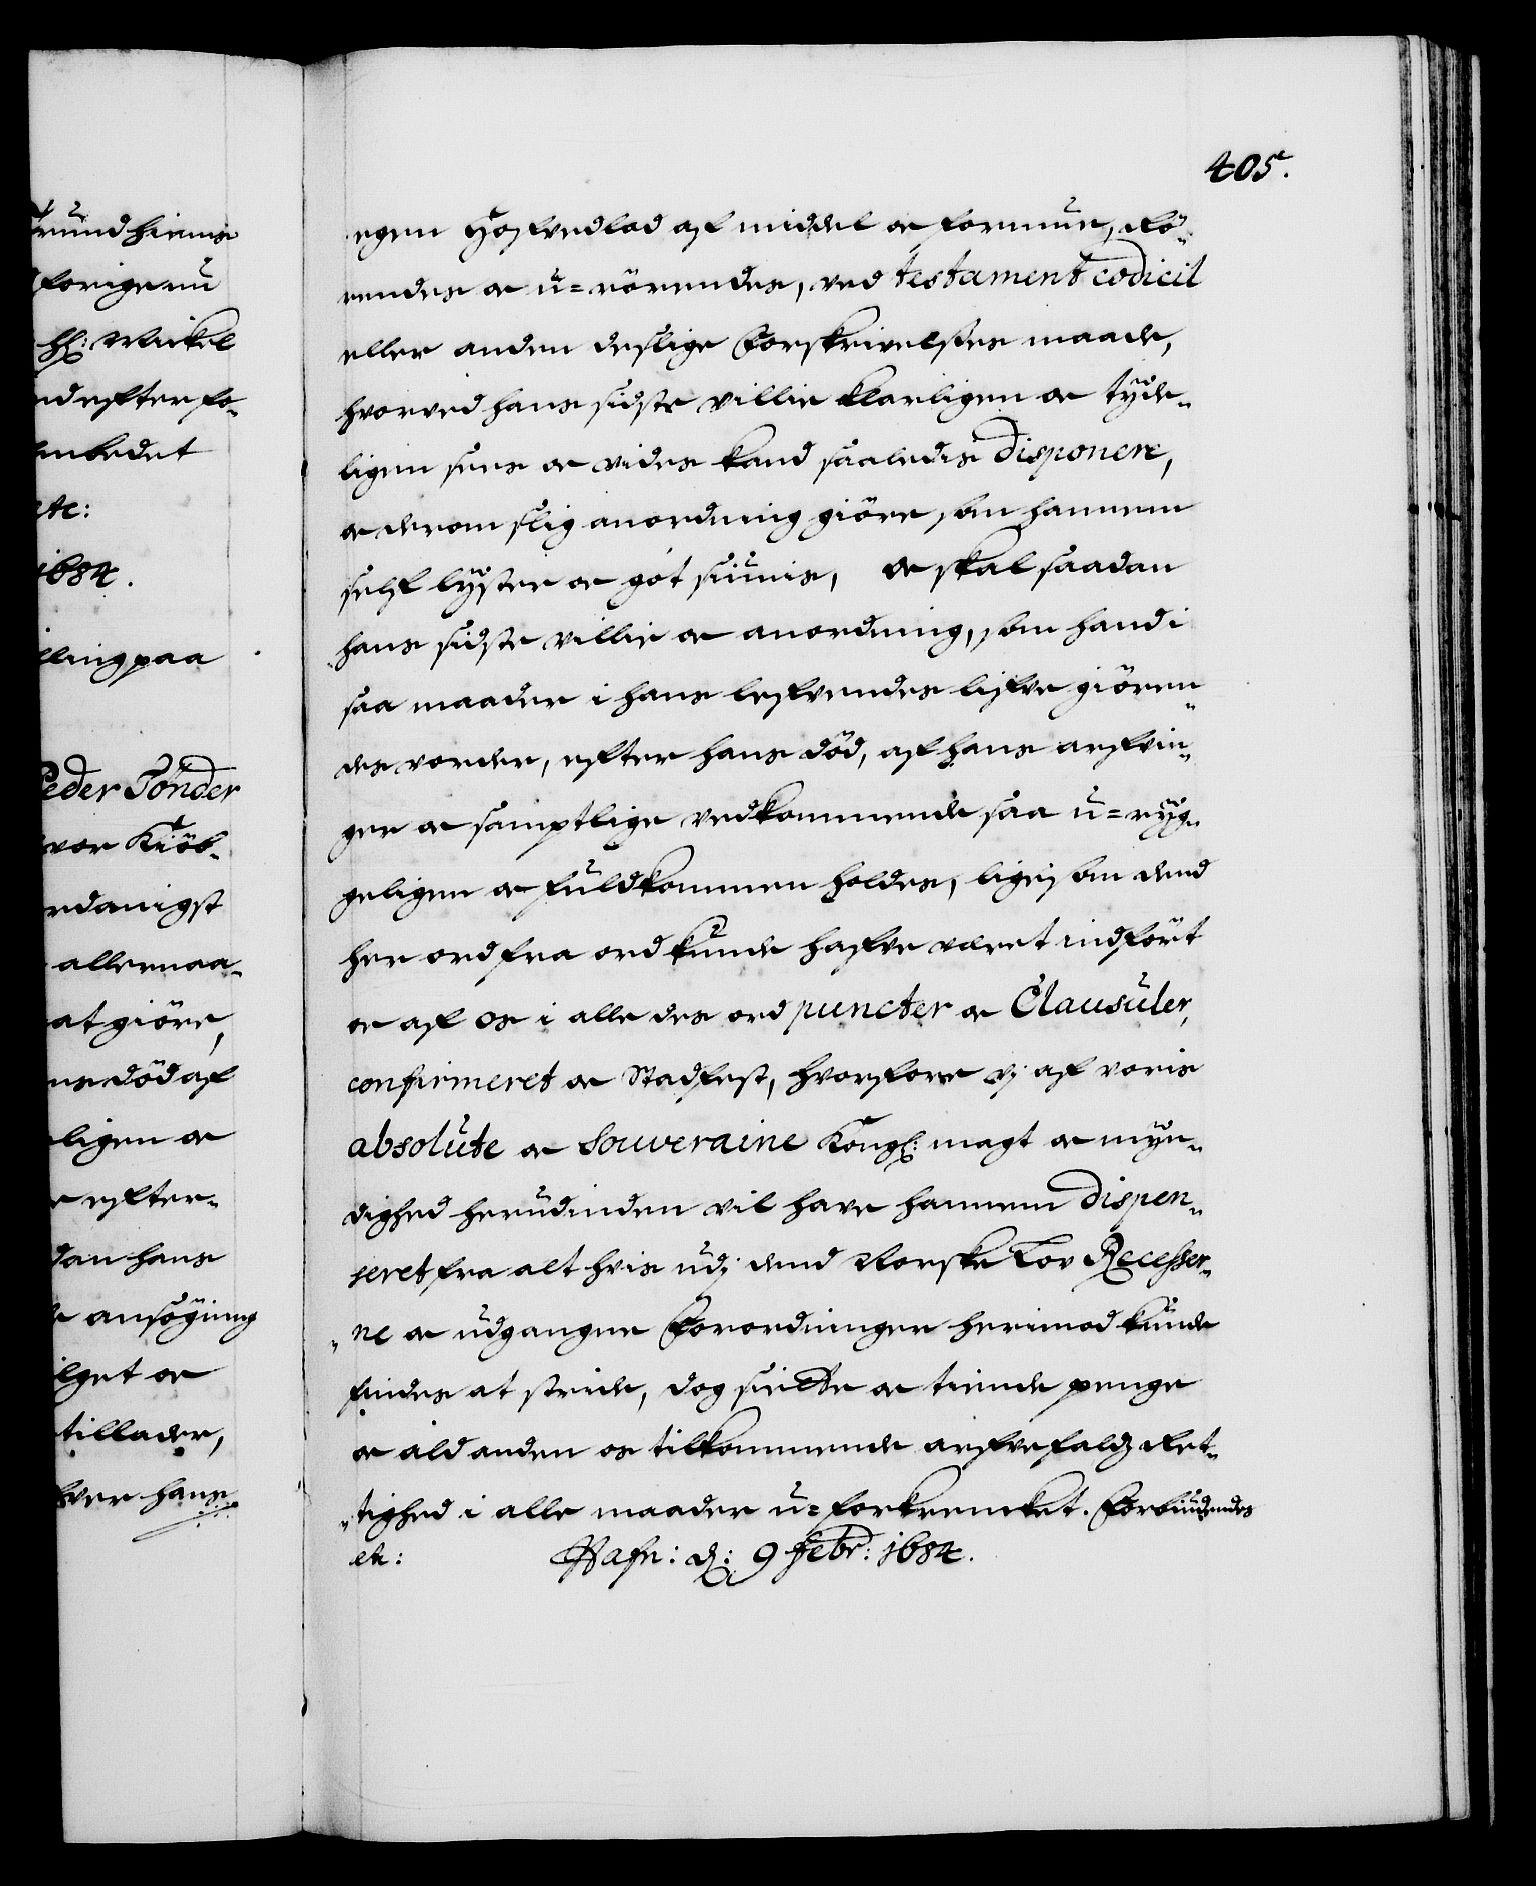 405.
rundhiems
forige nu
Hl: Mickel
nd efterfø-
embedet
etc:
1684.
lling paa
Peder Tønder
vor Kiöb-
rdanigst
allernaa-
at giöre,
ns död af
ligen oc
r effter-
dan hans
ansögning
ilget oc
tillader,
ver hans
egen Hosfvedlod af middel oc formue, Rö-
rendes oc u=rörendes, ved testament codicil
eller anden deslige Forskrivelsses maade,
hvorved hans sidste villie klarligen oc tyde-
ligen sees oc vides kand saaledis disponere,
oc derom slig anordning giöre, som hannem
self lyster oc got siunis, oc skal saadan
hans sidste villie oc anordning, som hand i
saa maader i hans lefvendes lifve giören-
des vorder, effter hans död, af hans arfvin-
ger oc samptlige vedkommende saa u=ryg-
geligen oc fuldkommen holdes, ligesom dend
her ord fra ord kunde hafve været indfört
oc af os i alle des ord puncter oc Clausuler,
confirmeret oc Stadfest, hvorfore vj af voris
absolute oc Souveraine Kongl: magt oc myn-
dighed herudinden vil have hannem dispen-
seret fra alt hvis udj dend Norske Lov Recesser-
ne oc udgangne Forordninger herimod kunde
findes at stride, dog siette oc tiende penge
oc ald anden os tilkommende arfvefalds Ret-
tighed i alle maader u=forkrencket. Forbiudendes
etc: Hafn: d: 9 Febr: 1684.